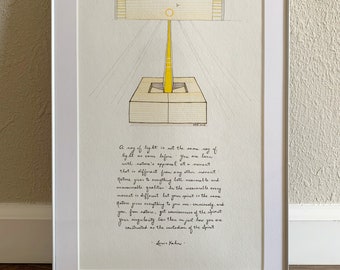 A ray of light is not the same ray of
light as came before. You are born
with nature's approval at a moment
that is different from any other moment.
Nature gives to everything both measurable and
unmeasurable qualities. In the measurable every
moment is different but your spirit is the same.
Nature gives everything to you un-consciously and
you, from nature, get consciousness of the spirit
your singularity lies then in just how you are
constituted as the custodian of the Spirit
Louis Kahn